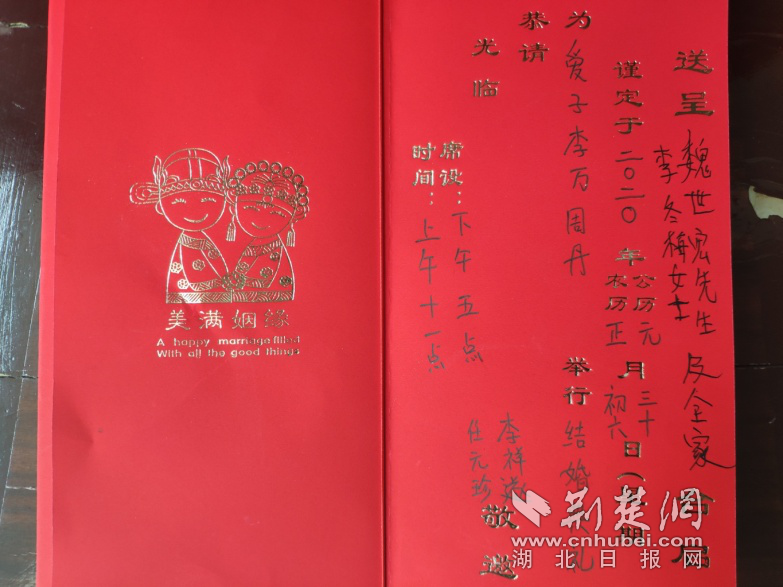 美满姻缘
A happy marriage filled
With all the good things
送呈 魏世宏先生 及全家
李冬梅女士
谨定于二〇二〇年 公历 元 月 三十 日
农历 正 初六
为爱子李万周丹 举行 结婚 礼
恭请
光临
席设:下午五点
时间:上午十一点
李祥
任元珍
敬邀
荆楚网
www.cnhubei.com
湖北日报网